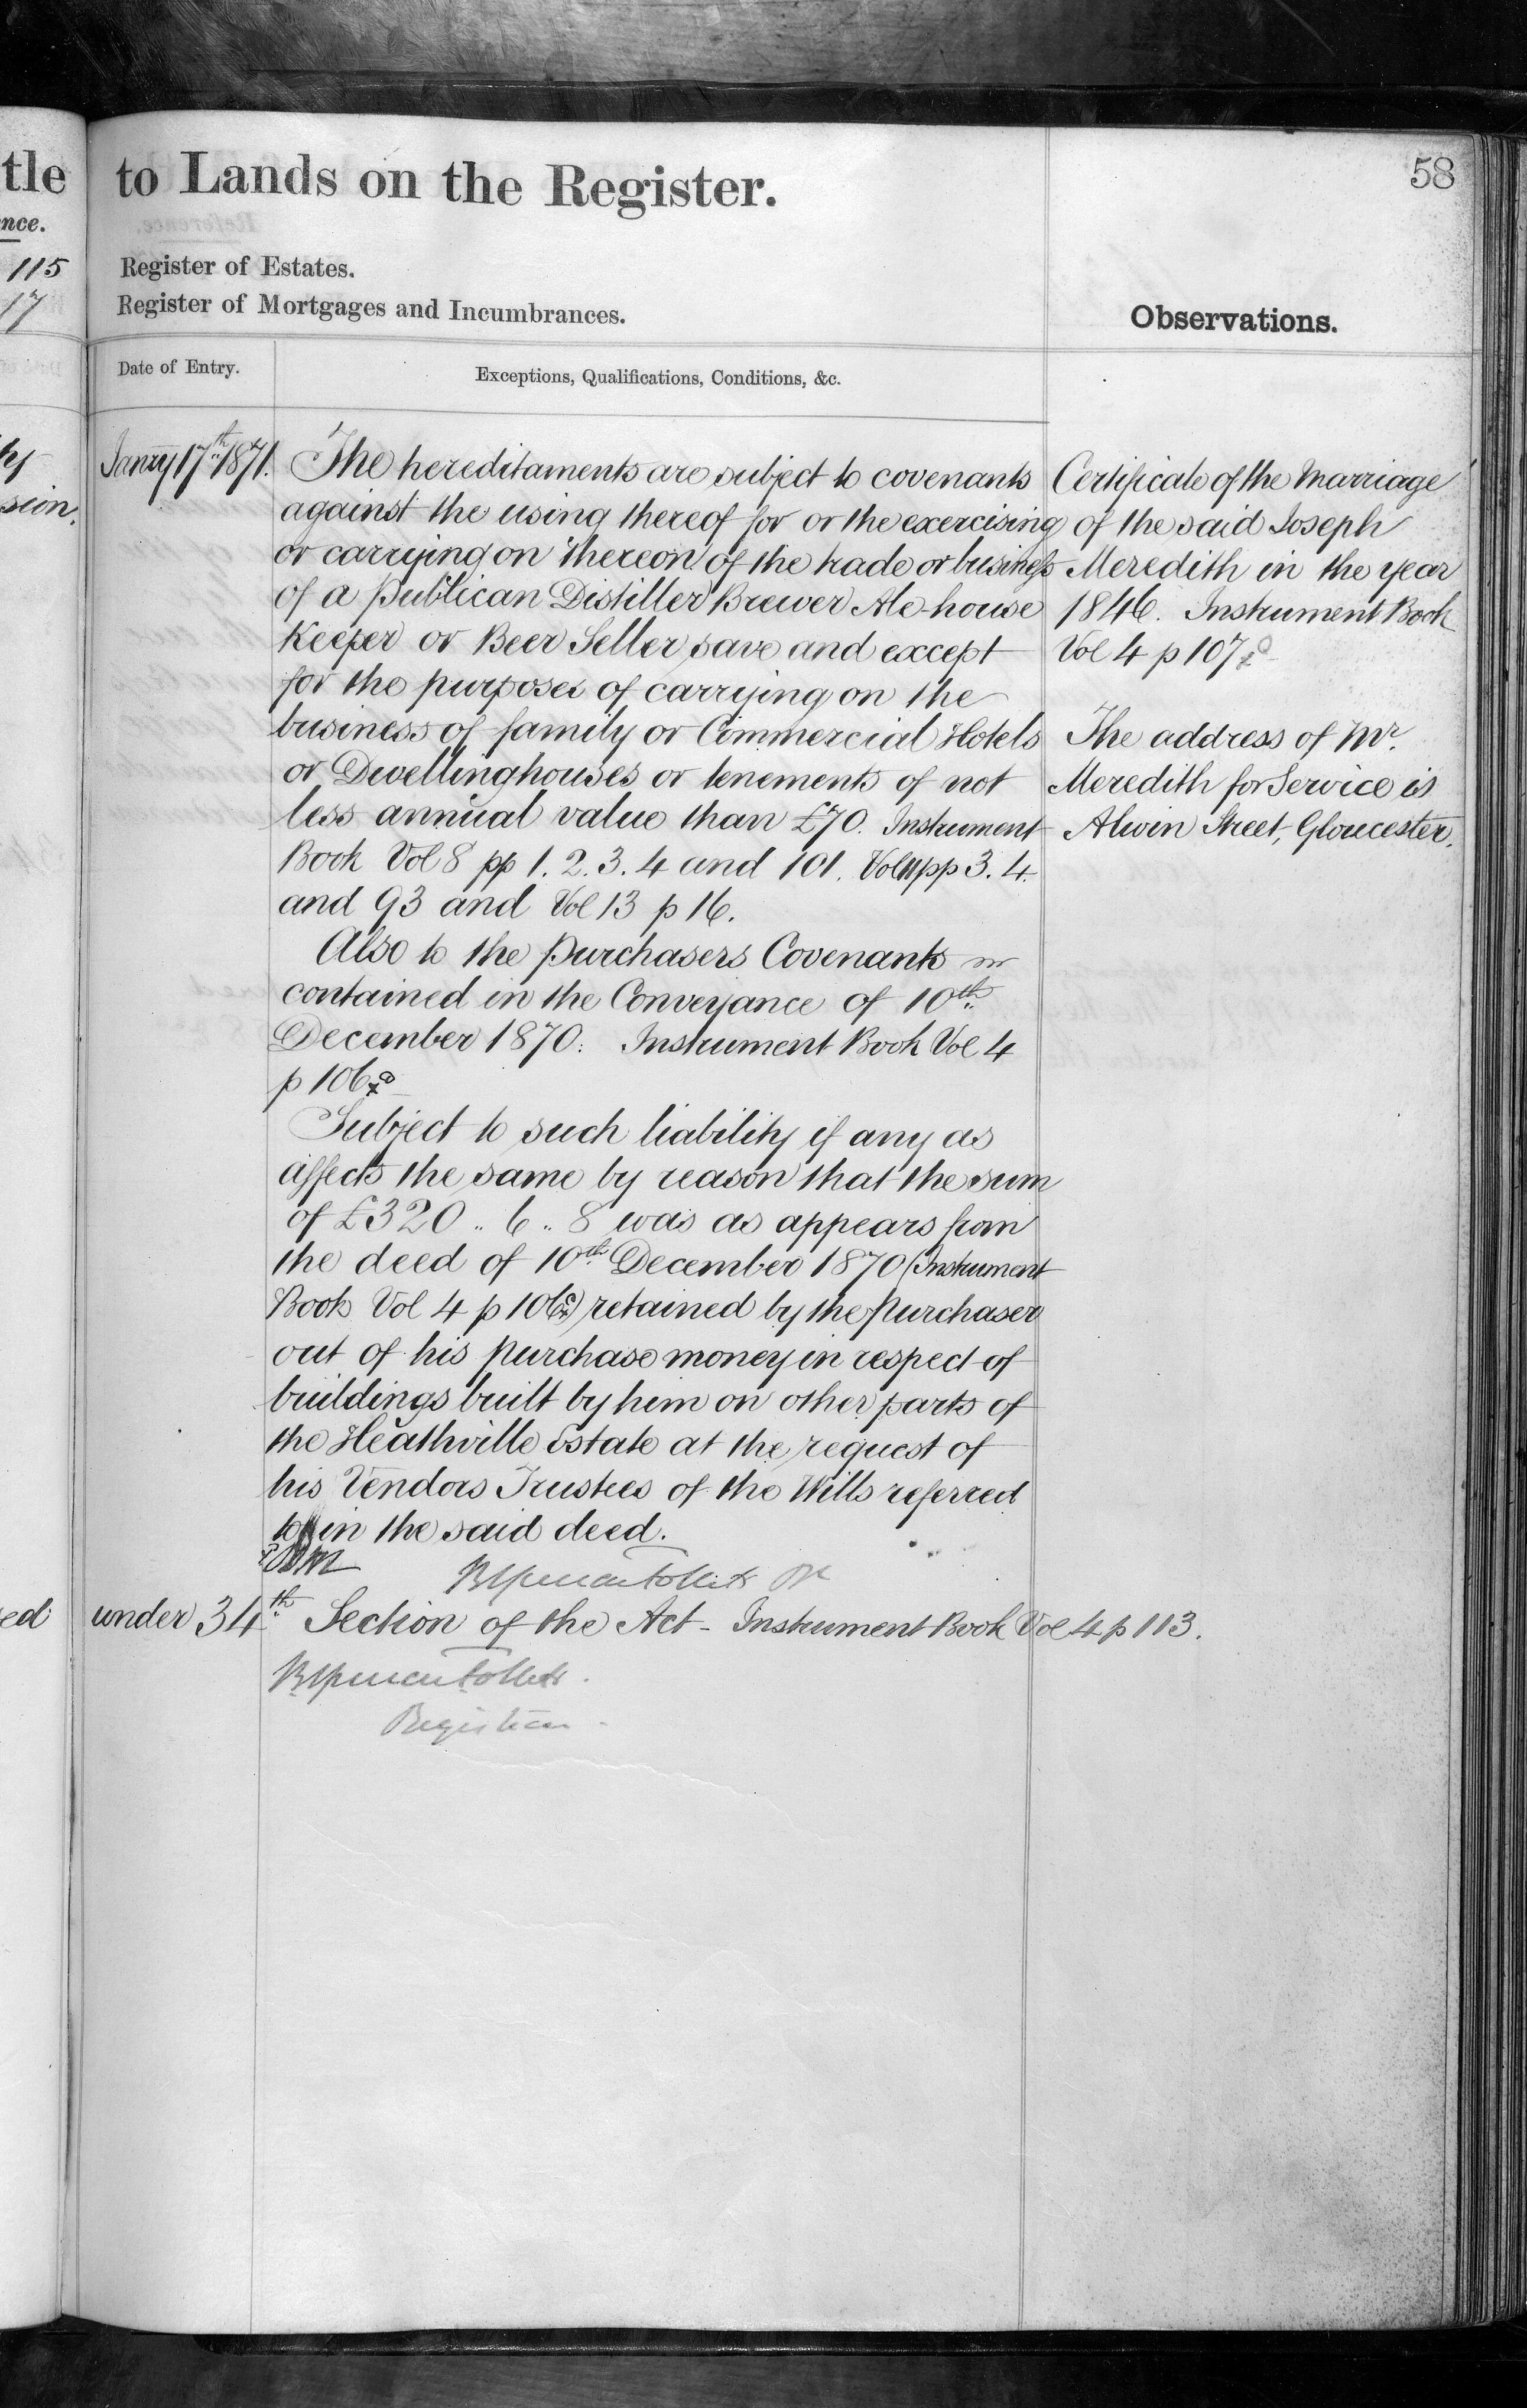 tle
nce.
115
17
sion.
ed
to Lands on the Register.
58
Register of Estates.
Register of Mortgages and Incumbrances.
Observations.
Date of Entry.
Exceptions, Qualifications, Conditions, &c.
Janry 17th 1871.
The hereditaments are subject to covenants
against the using thereof for or the exercising
or carrying on thereon of the trade or business
of a Publican Distiller Brewer Ale-house
Keeper or Beer Seller save and except
for the purposes of carrying on the
business of family or Commercial Hotels
or Dwellinghouses or tenements of not
less annual value than £70. Instrument
Book Vol 8 pp 1. 2. 3. 4 and 101. Vol 11 pp 3. 4.
and 93 and Vol 13 p 16.
Also to the Purchasers Covenants
contained in the Conveyance of 10th
December 1870. Instrument Book Vol 4
p 106
Subject to such liability if any as
affects the same by reason that the sum
of £320 .. 6 .. 8 was as appears from
the deed of 10th December 1870 (Instrument
Book Vol 4 p 106) retained by the purchaser
out of his purchase money in respect of
buildings built by him on other parts of
the Heathville Estate at the request of
his Vendors Trustees of the Wills referred
to in the said deed.
under 34th Section of the Act - Instrument Book Vol 4 p 113.
Registrar
Certificate of the Marriage
of the said Joseph
Meredith in the year
1846. Instrument Book
Vol 4 p 107
The address of Mr.
Meredith for Service is
Alwin Street, Gloucester.